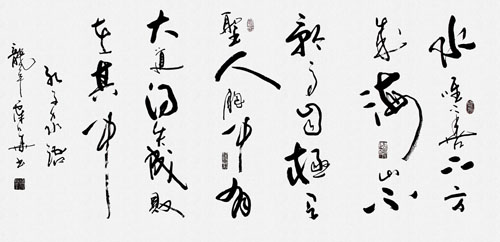 水唯善下方
成海山不
矜高自極天
聖人胸中有
大道得失成敗
在其中
孔子語
龍年書